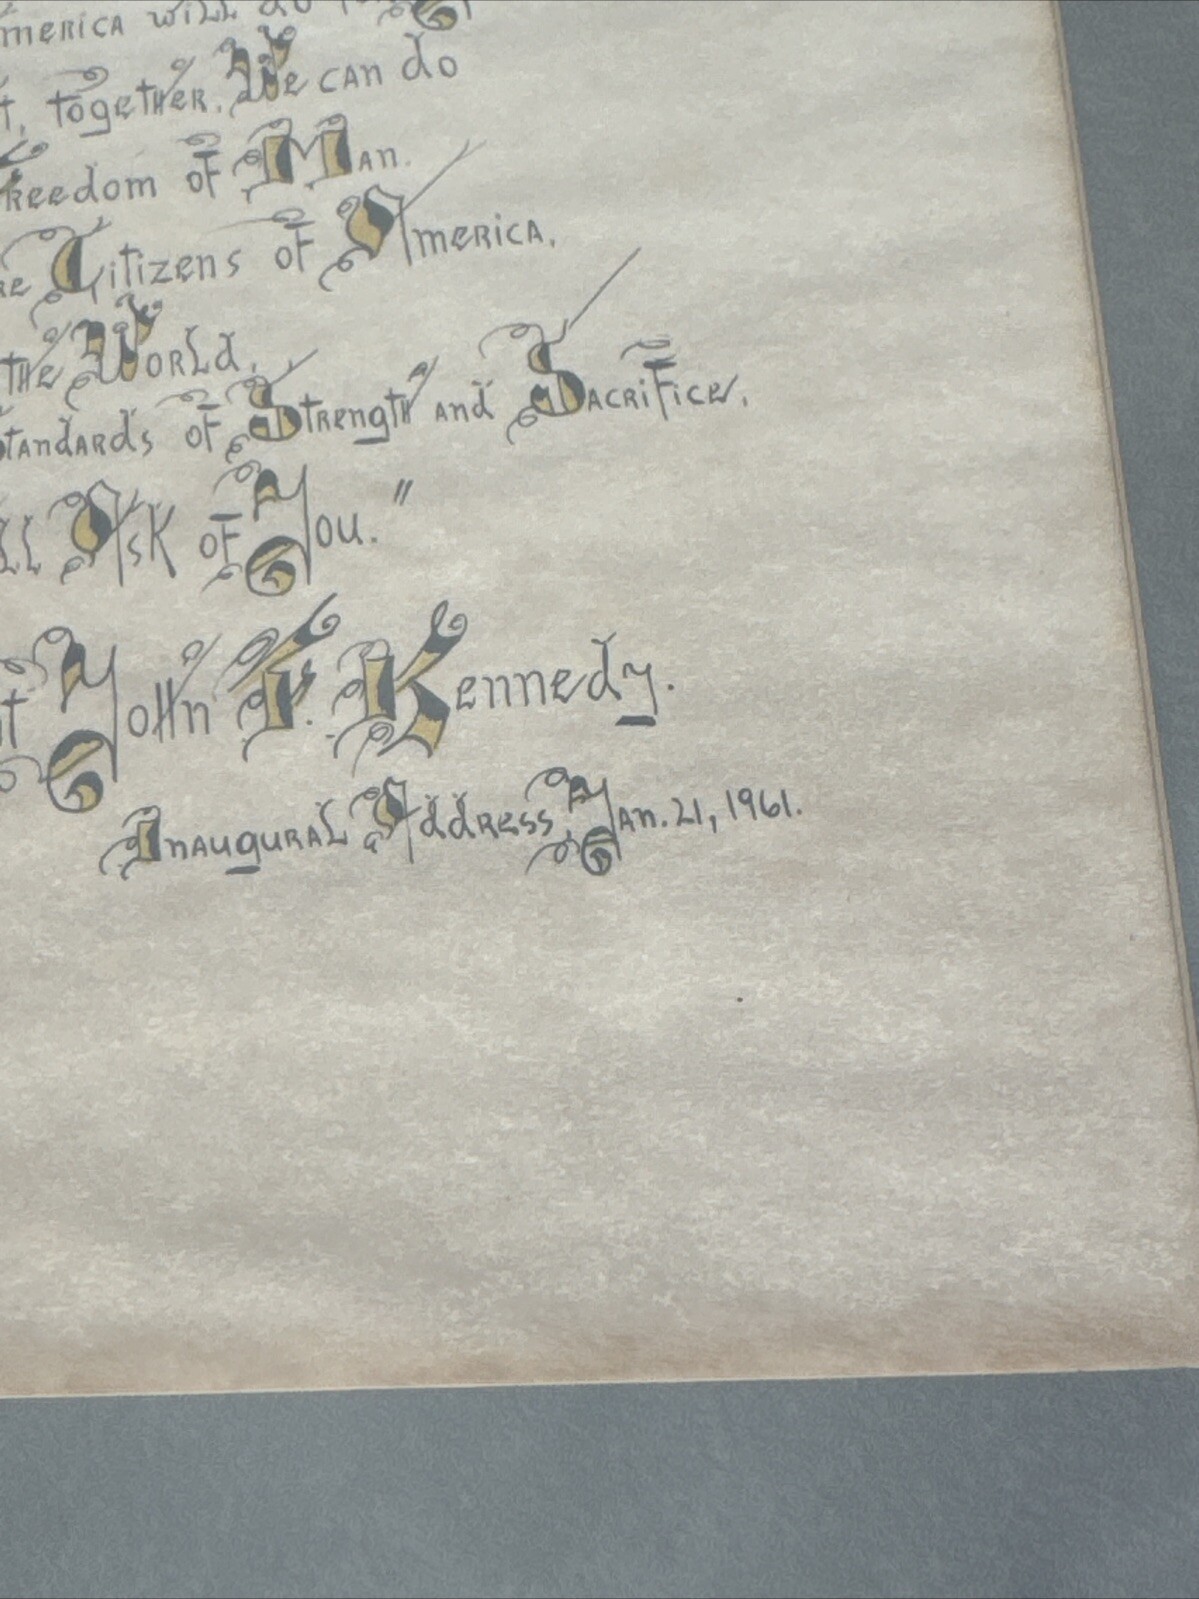 merica will do
t, together, We can do
Freedom of Man.
re Citizens of America,
the World,
Standards of Strength and Sacrifice,
ll Ask of You."
t John F. Kennedy.
Inaugural Address, Jan. 21, 1961.